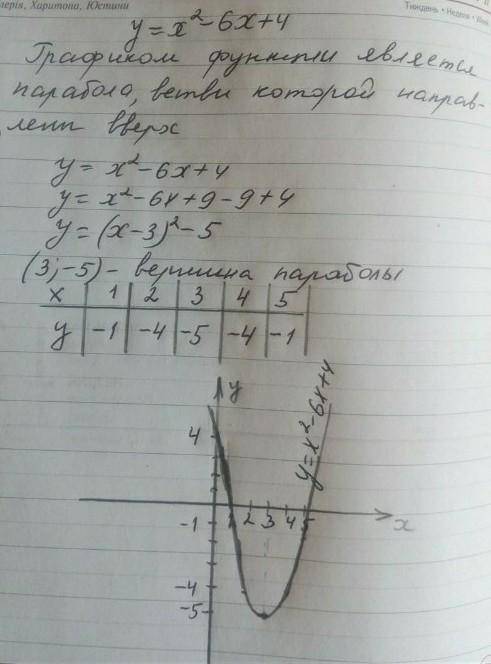 лерія, Харитона, Юстини
Тиждень • Неделя •
y = x² - 6x + 4
Графиком функции является
парабола, ветви которой направ-
лены вверх
y = x² - 6x + 4
y = x² - 6x + 9 - 9 + 4
y = (x - 3)² - 5
(3; -5) - вершина параболы
x | 1 | 2 | 3 | 4 | 5
y | -1 | -4 | -5 | -4 | -1
y
y = x² - 6x + 4
4
1 2 3 4 5
x
-1
-4
-5